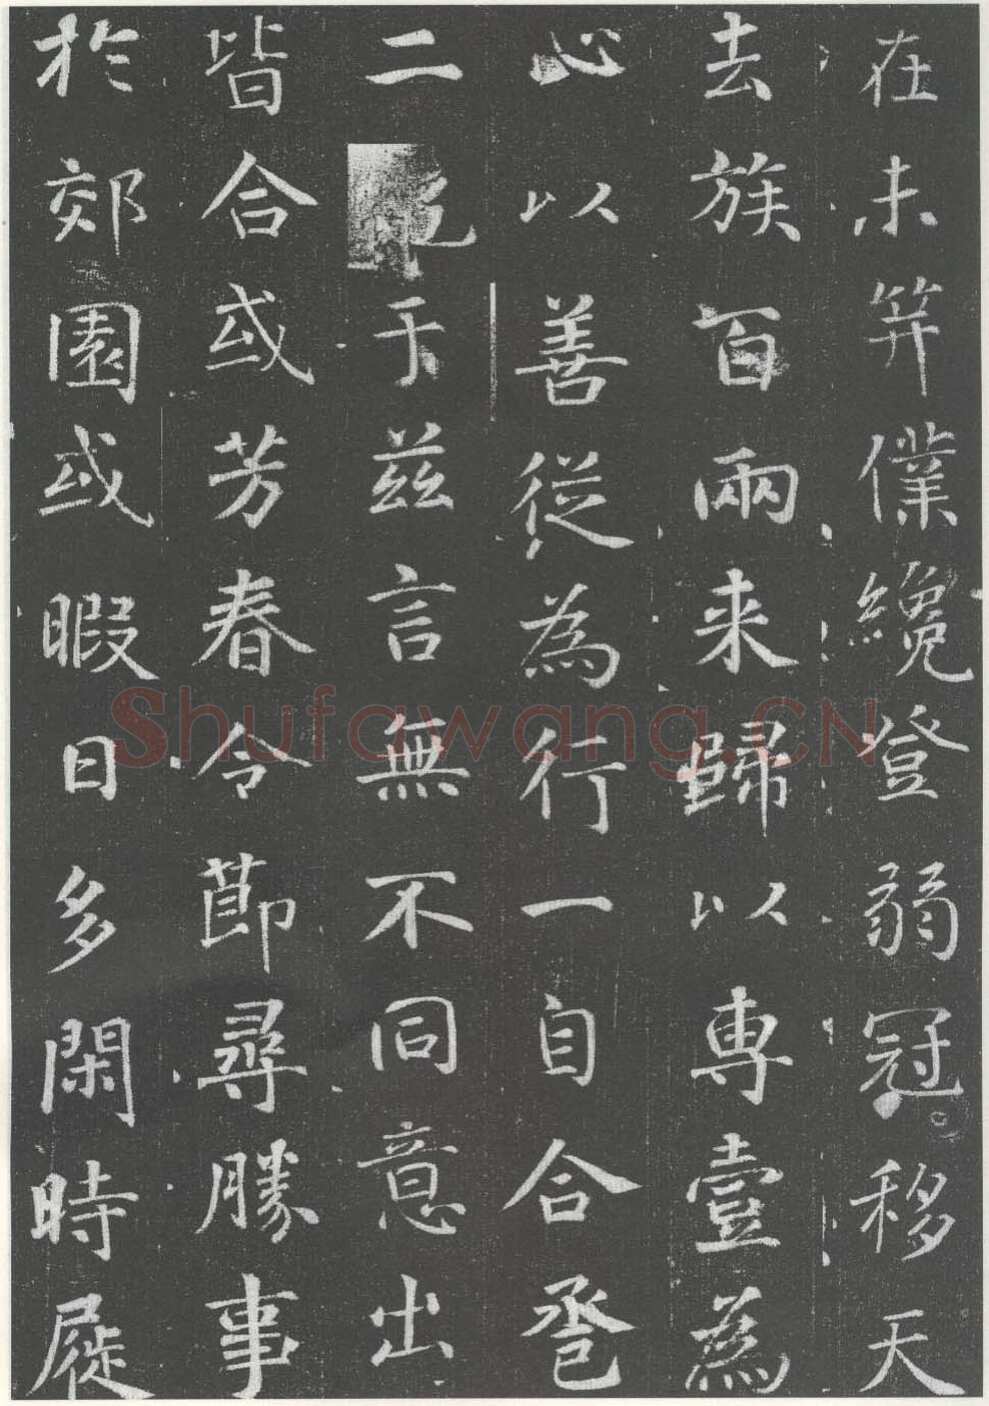 在未笄僕纔登弱冠移天
去族百兩来歸以專壹為
心以善從為行一自合卺
二于兹言無不同意出
皆合或芳春令節尋勝事
於郊園或暇日多閑時屣
Shufawang.CN